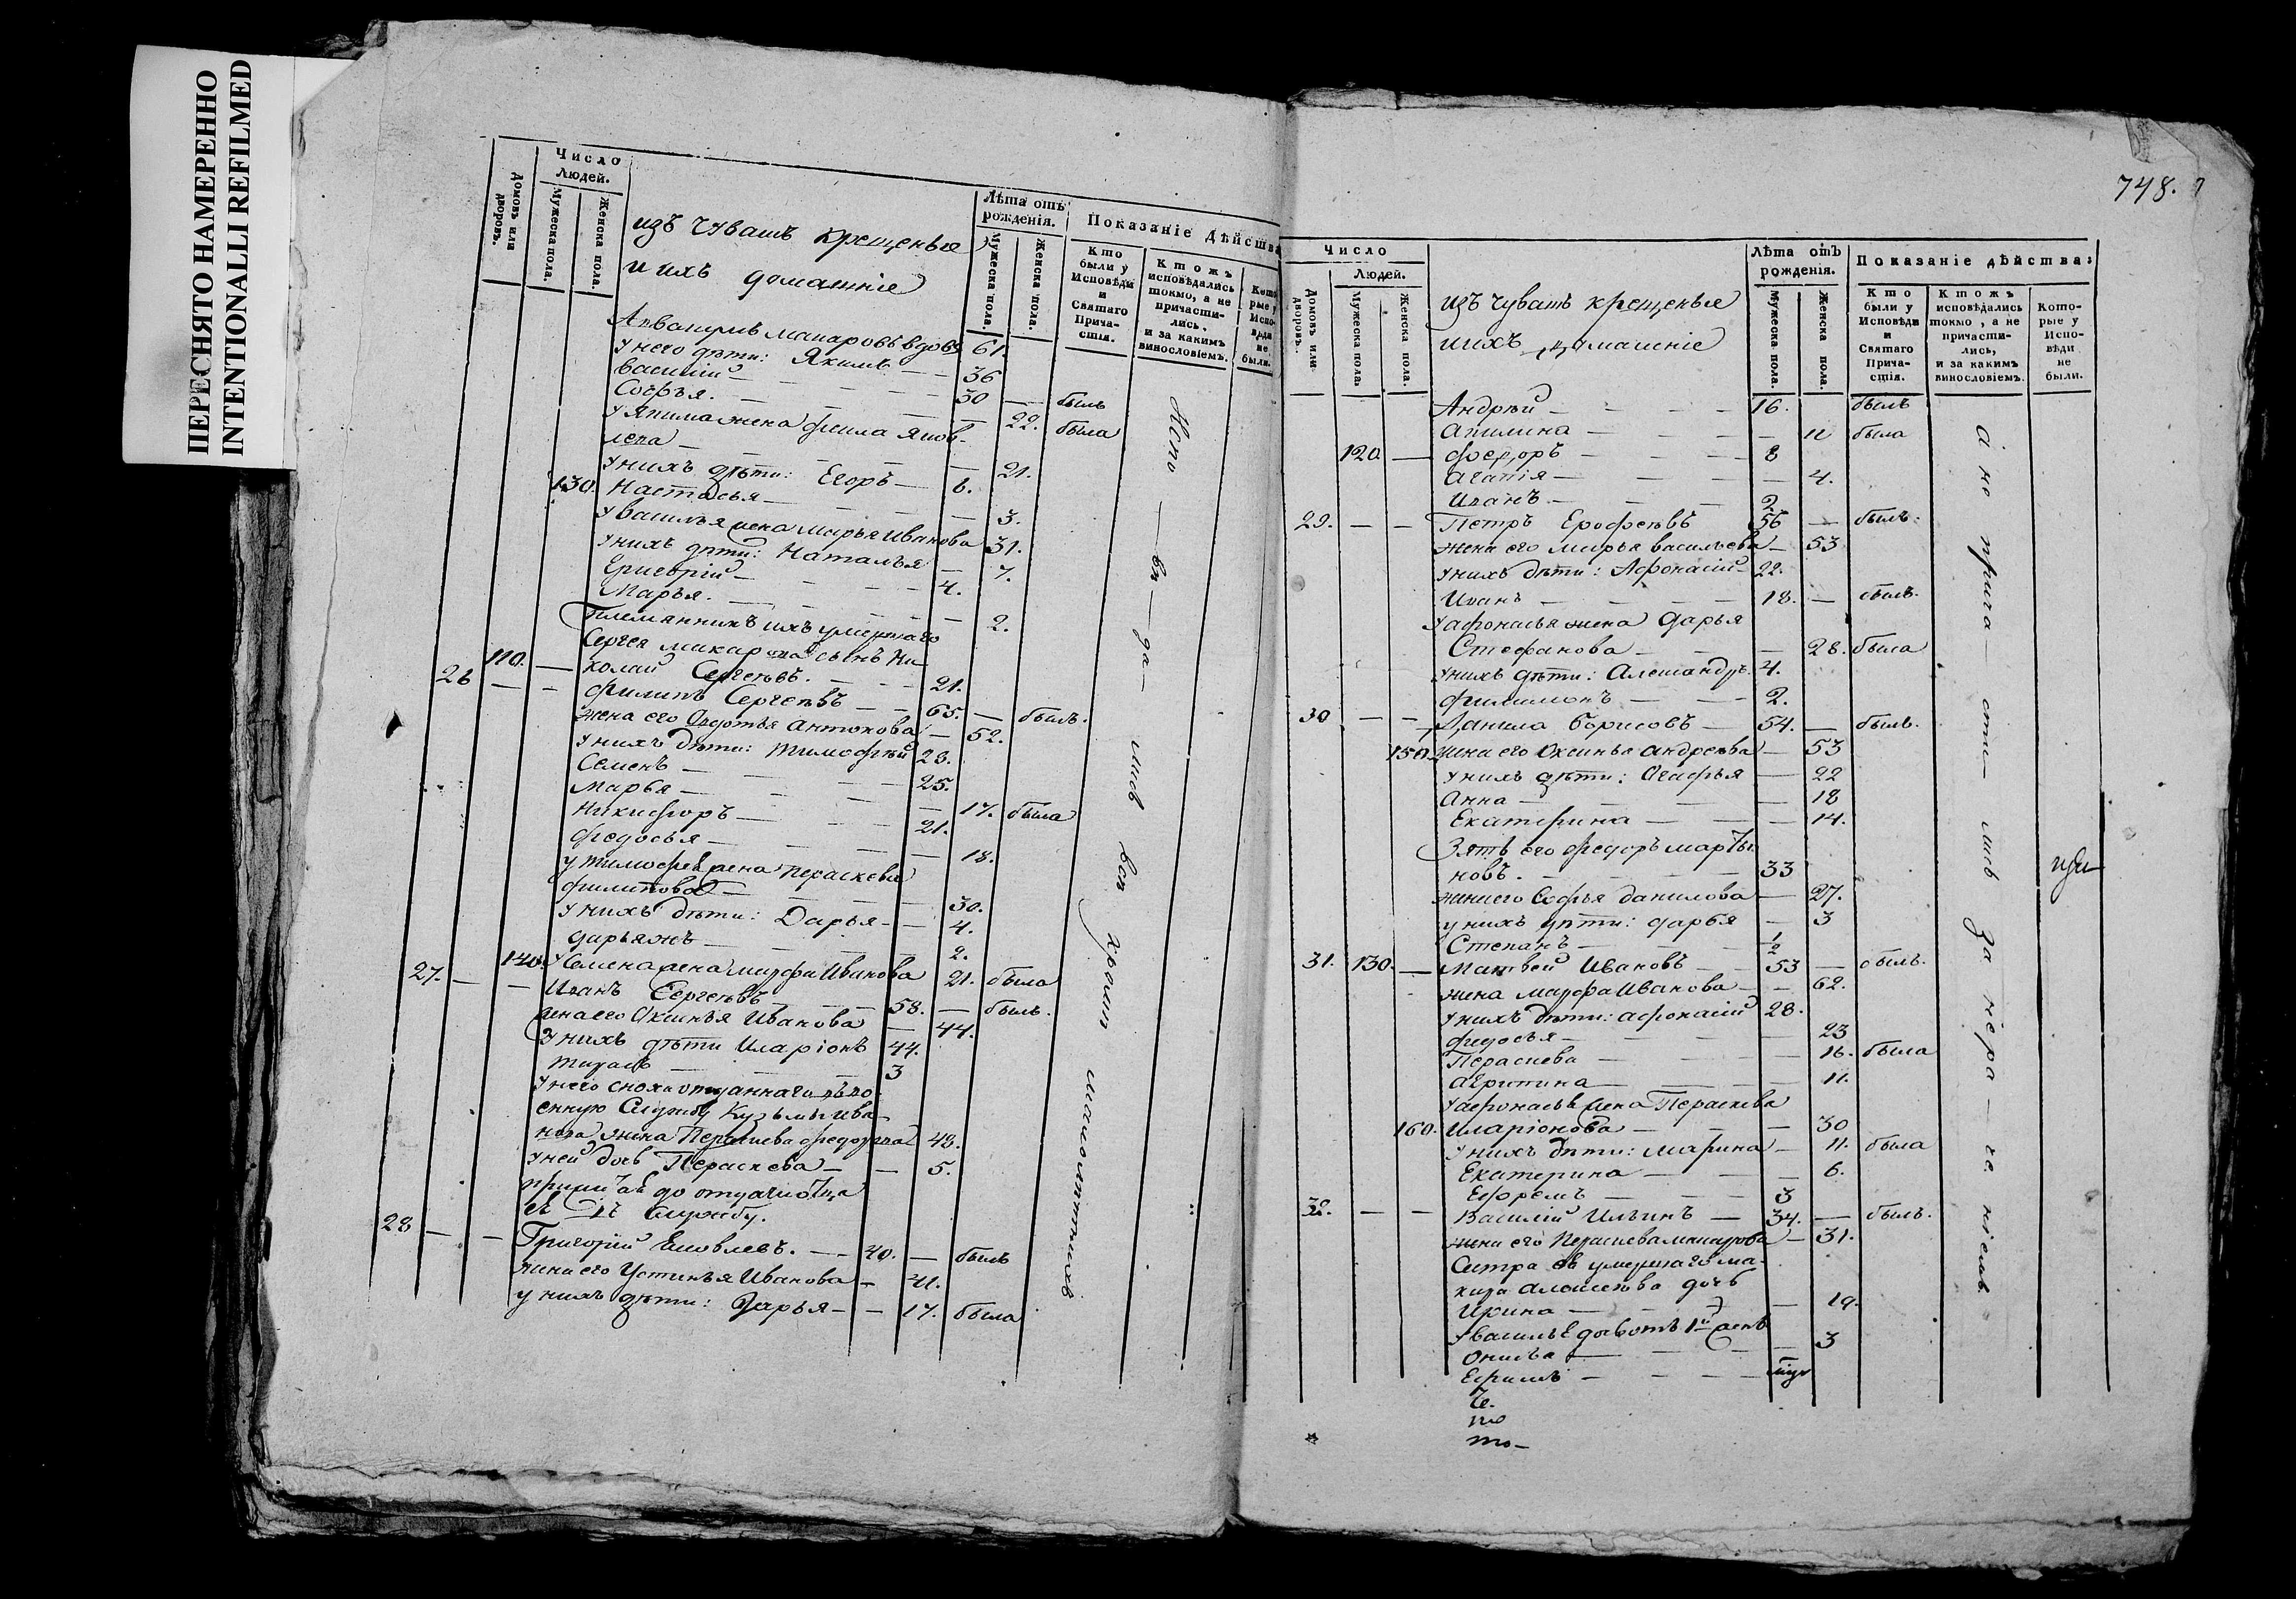 ПЕРЕСНЯТО НАМЕРЕННО
INTENTIONALLI REFILMED
Число
Людей.
Домовъ или дворовъ.
Мужеска пола.
Женска пола.
изъ чувашъ крещеныя
и ихъ домашнiе
Лѣта отъ рожденiя.
Мужеска пола.
Женска пола.
Показанiе Дѣйства
Кто были у Исповѣди и Святаго Причастiя.
Ктожъ исповѣдались токмо, а не причастились, и за какимъ винословiемъ.
Которые у Исповѣди не были.
макаровъ вдовъ 61.
у него дѣти: Якимъ — 36
василiй — 30 — былъ
Софья. — 22. была
у Якима жена
— 21.
у нихъ дѣти: Егоръ — 6.
130. Настасья — 3.
у василья жена марья Иванова 31.
у нихъ дѣти: Наталья — 7.
Григорiй — 4.
Марья. — 2.
Племянникъ ихъ умершаго
Сергея макарова сынъ Ни
110. — колай Сергеевъ. — 21.
26 — — филипъ Сергеевъ — 65. — былъ.
жена его Авдотья Антонова — 52.
у нихъ дѣти: Тимофѣй 28.
Семенъ — 25.
Марья — 17. была
Никифоръ — 21.
федосья — 18.
у тимофея жена Параскева
филипова — 30.
у нихъ дѣти: Дарья — 4.
дарья — 2.
140. у Семена жена марфа Иванова 21. была
27. — — Иванъ Сергеевъ — 58. — былъ.
жена его Аксинья Иванова — 44.
у нихъ дѣти Иларiонъ 44.
— 3
у него сноха отданнаго въ во
енную Службу Кузьмы Ива
нова жена Параскева федорова 43.
у ней дочь Параскева — — 5.
до отдачи отца
въ службу.
28 — — Григорiй Яковлевъ. — 40. — былъ
жена его Устинья Иванова — 41.
у нихъ дѣти: Дарья — — 17. была
малолетнихъ
748.
Число
Людей.
Домовъ или дворовъ.
Мужеска пола.
Женска пола.
изъ чувашъ крещеныя
и ихъ домашнiе
Лѣта отъ рожденiя.
Мужеска пола.
Женска пола.
Показанiе дѣйства:
Кто были у Исповѣди и Святаго Причастiя.
Ктожъ исповѣдались токмо, а не причастились, и за какимъ винословiемъ.
Которые у Исповѣди не были.
Андрѣй — 16. былъ
Акилина — — 11 была
120. — федоръ — 8
агапiя — — 4.
Иванъ — 2
29. — — Петръ Ерофеевъ 56 — былъ.
жена его марья васильева — 53
у нихъ дѣти: Афонасiй 22.
Иванъ — 18. — былъ.
у афонасья жена Дарья
Стефанова — — 28. была
у нихъ дѣти: Александръ 4.
филимонъ — 2.
30 — — Данила борисовъ — 54. — былъ.
150. жена его Оксинья андреева — 53
у нихъ дѣти: Агафья — 22
Анна — — 18
Екатерина — — 14.
Зять его федоръ марты
новъ. — 33
жена его Софья данилова — 27.
у нихъ дѣти: дарья — 3
Степанъ — 1/2
31. 130. — Матвей Ивановъ — 53 — былъ.
жена марфа Иванова — 62.
у нихъ дѣти: афонасiй 28.
федосья — 23
Параскева — 16. была
агрипина — 11.
у афонасья жена Параскева
160. иларiонова — — 30
у нихъ дѣти: марина — 11. была
Екатерина — — 6.
Ефремъ — 3
32. — — Василiй Ильинъ — 34. — былъ.
жена его Параскева макарова — 31.
Сестра ея умершаго ма-
кара алексеева дочь
Ирина — — 19.
у василья дочь отъ 1й жены
— 3
Ефимъ —
а не прича — сти — лись за нера — че нiемъ